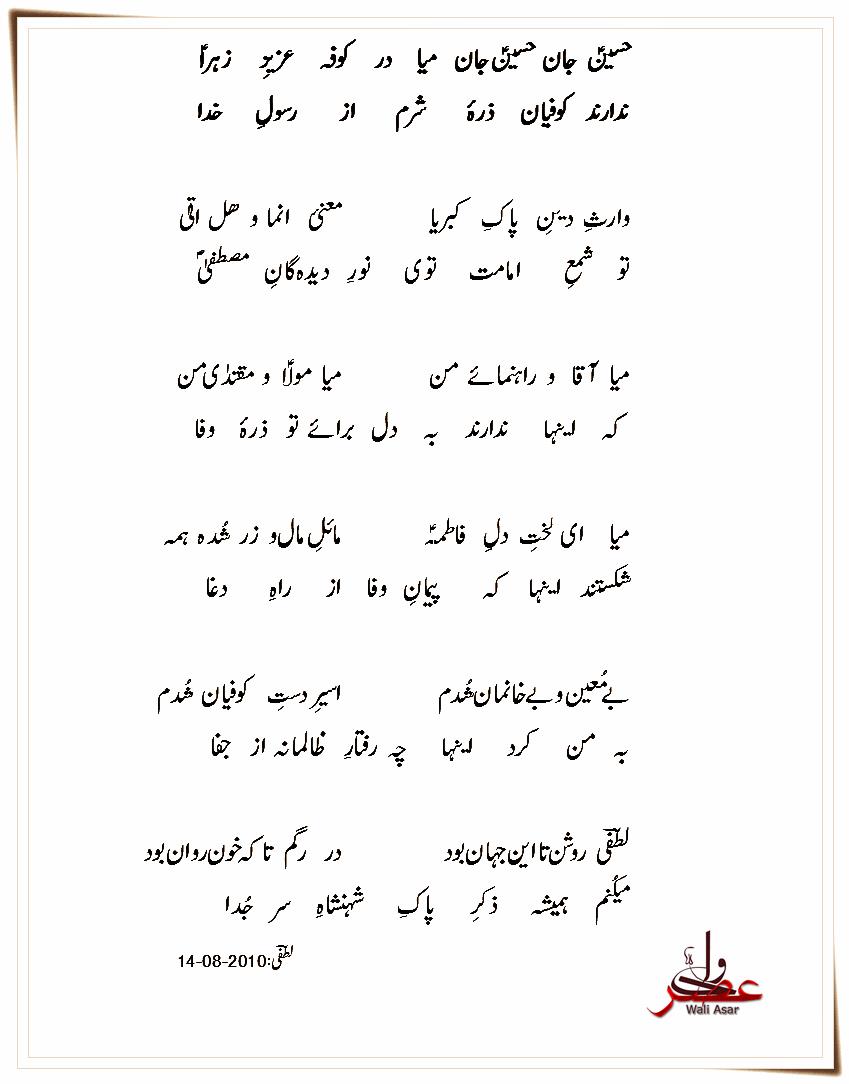 حسینؑ جان حسینؑ جان میا در کوفہ عزیزِ زہراؑ
ندارند کوفیان ذرۂ شرم از رسولِ خدا
وارثِ دینِ پاکِ کبریا معنیٔ انما و ھل اتی
تو شمعِ امامت توی نورِ دیدہ گانِ مصطفیٰؐ
میا آقا و راہنمائے من میا مولاؑ و مقتدٰی من
کہ اینہا ندارند بہ دل برائے تو ذرۂ وفا
میا ای لختِ دلِ فاطمہؑ مائلِ مال و زر شُدہ ہمہ
شکستند اینہا کہ پیمانِ وفا از راہِ دغا
بے مُعین و بے خانمان شُدم اسیرِ دستِ کوفیان شُدم
بہ من کرد اینہا چہ رفتارِ ظالمانہ از جفا
لطفیؔ روشن تا این جہان بود در رگم تا کہ خون روان بود
میکُنم ہمیشہ ذکرِ پاکِ شہنشاہِ سر جُدا
لطفیؔ:14-08-2010
ولی عصر
Wali Asar